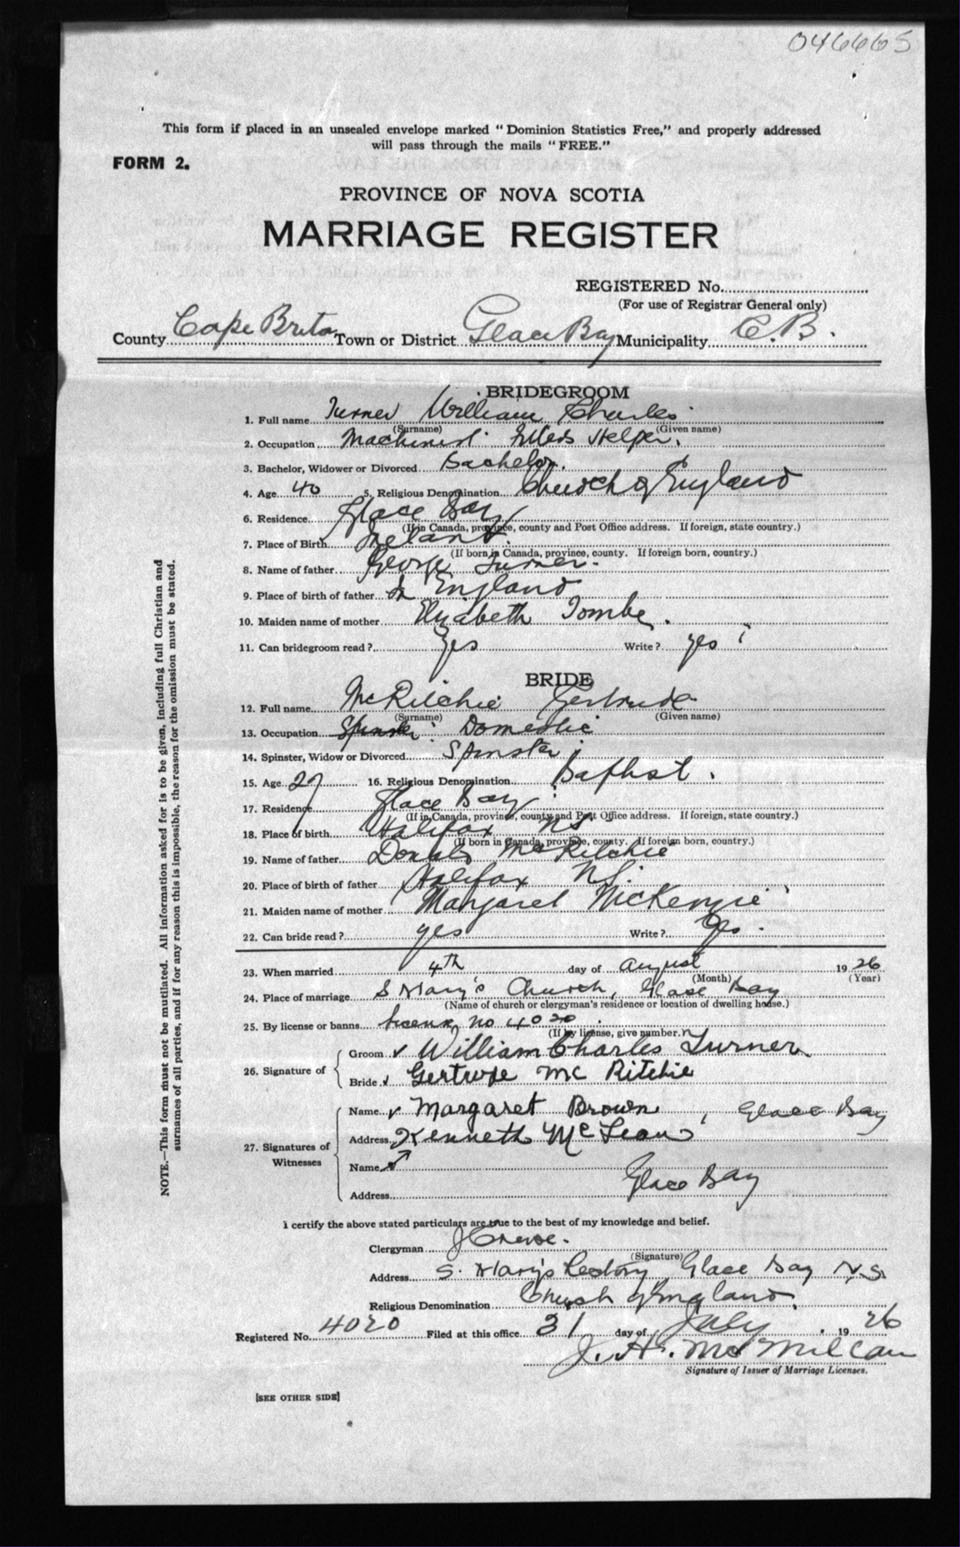 046665
This form if placed in an unsealed envelope marked "Dominion Statistics Free," and properly addressed
will pass through the mails "FREE."
FORM 2.
PROVINCE OF NOVA SCOTIA
MARRIAGE REGISTER
REGISTERED No.
(For use of Registrar General only)
County Cape Breton Town or District Glace Bay Municipality C.B.
BRIDEGROOM
1. Full name Turner William Charles
(Surname) (Given name)
2. Occupation Machinist Helper.
3. Bachelor, Widower or Divorced Bachelor.
4. Age 40 5. Religious Denomination Church of England
6. Residence Glace Bay
(If in Canada, province, county and Post Office address. If foreign, state country.)
7. Place of Birth Ireland.
(If born in Canada, province, county. If foreign born, country.)
8. Name of father George Turner.
9. Place of birth of father England
10. Maiden name of mother Elizabeth Tombe.
11. Can bridegroom read? Yes Write? yes
BRIDE
12. Full name McRitchie Gertrude
(Surname) (Given name)
13. Occupation Spinster Domestic
14. Spinster, Widow or Divorced Spinster
15. Age 27 16. Religious Denomination Baptist.
17. Residence Glace Bay
(If in Canada, province, county and Post Office address. If foreign, state country.)
18. Place of birth Halifax NS
(If born in Canada, province, county. If foreign born, country.)
19. Name of father Donald McRitchie
20. Place of birth of father Halifax NS.
21. Maiden name of mother Margaret McKenzie
22. Can bride read? yes Write? Yes.
23. When married 4th day of August 1926
(Month) (Year)
24. Place of marriage S Mary's Church, Glace Bay
(Name of church or clergyman's residence or location of dwelling house.)
25. By license or banns license no 4020
(If by license, give number.)
26. Signature of
Groom William Charles Turner
Bride Gertrude Mc Ritchie
27. Signatures of Witnesses
Name Margaret Brown, Glace Bay
Address Kenneth McLean
Name
Address Glace Bay
I certify the above stated particulars are true to the best of my knowledge and belief.
Clergyman
(Signature)
Address S. Mary's Rectory Glace Bay N.S.
Religious Denomination Church of England.
Registered No. 4020 Filed at this office 31 day of July 1926
J. H. McMillan
Signature of Issuer of Marriage Licenses.
[SEE OTHER SIDE]
NOTE.—This form must not be mutilated. All information asked for is to be given, including full Christian and
surnames of all parties, and if for any reason this is impossible, the reason for the omission must be stated.